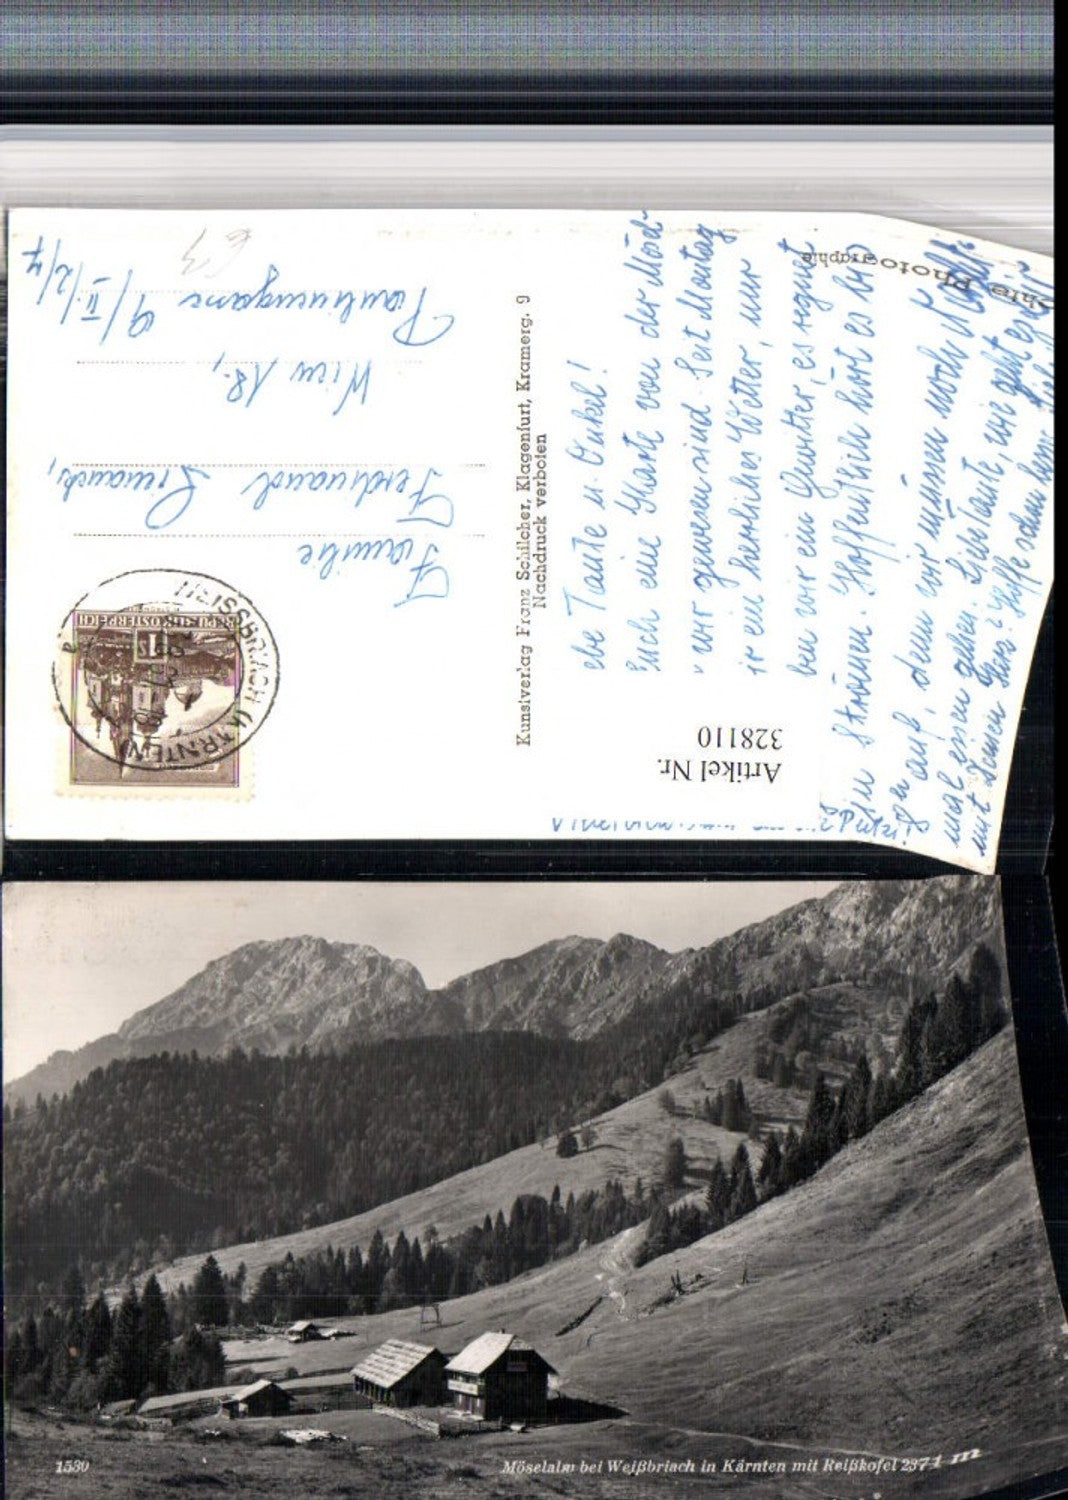 ebe Tante u. Onkel!
Euch eine Karte von der Mösel-
wir gewesen sind. Seit Montag
ir ein herrliches Wetter, nur
ben wir ein Gewitter, es regnet
in Strömen. Hoffentlich hört es bis
auf, denn wir müssen noch
mal essen gehen. Liebe Tante, wie geht es
mit Deinen Herz? Hoffe schon
Familie
Ferdinand
Wien 18.,
Paulinengasse 9/II/2/7
Kunstverlag Franz Schilcher, Klagenfurt, Kramerg. 9
Nachdruck verboten
Echte Photographie
Artikel Nr.
328110
REPUBLIK ÖSTERREICH
WEISSBRIACH (KÄRNTEN)
1530
Möselalm bei Weißbriach in Kärnten mit Reißkofel 2371 m